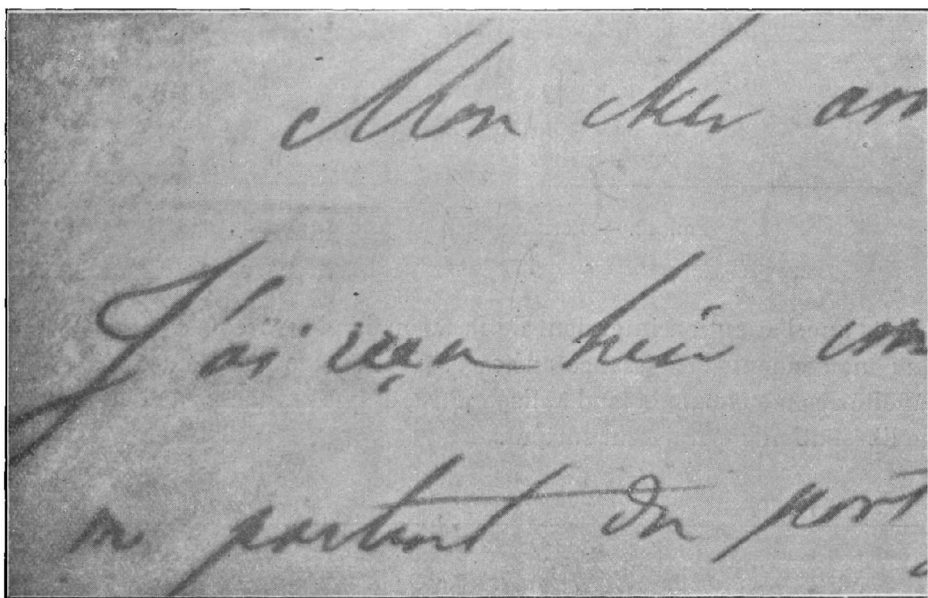 Mon cher am
J'ai reçu hier
en partant du port